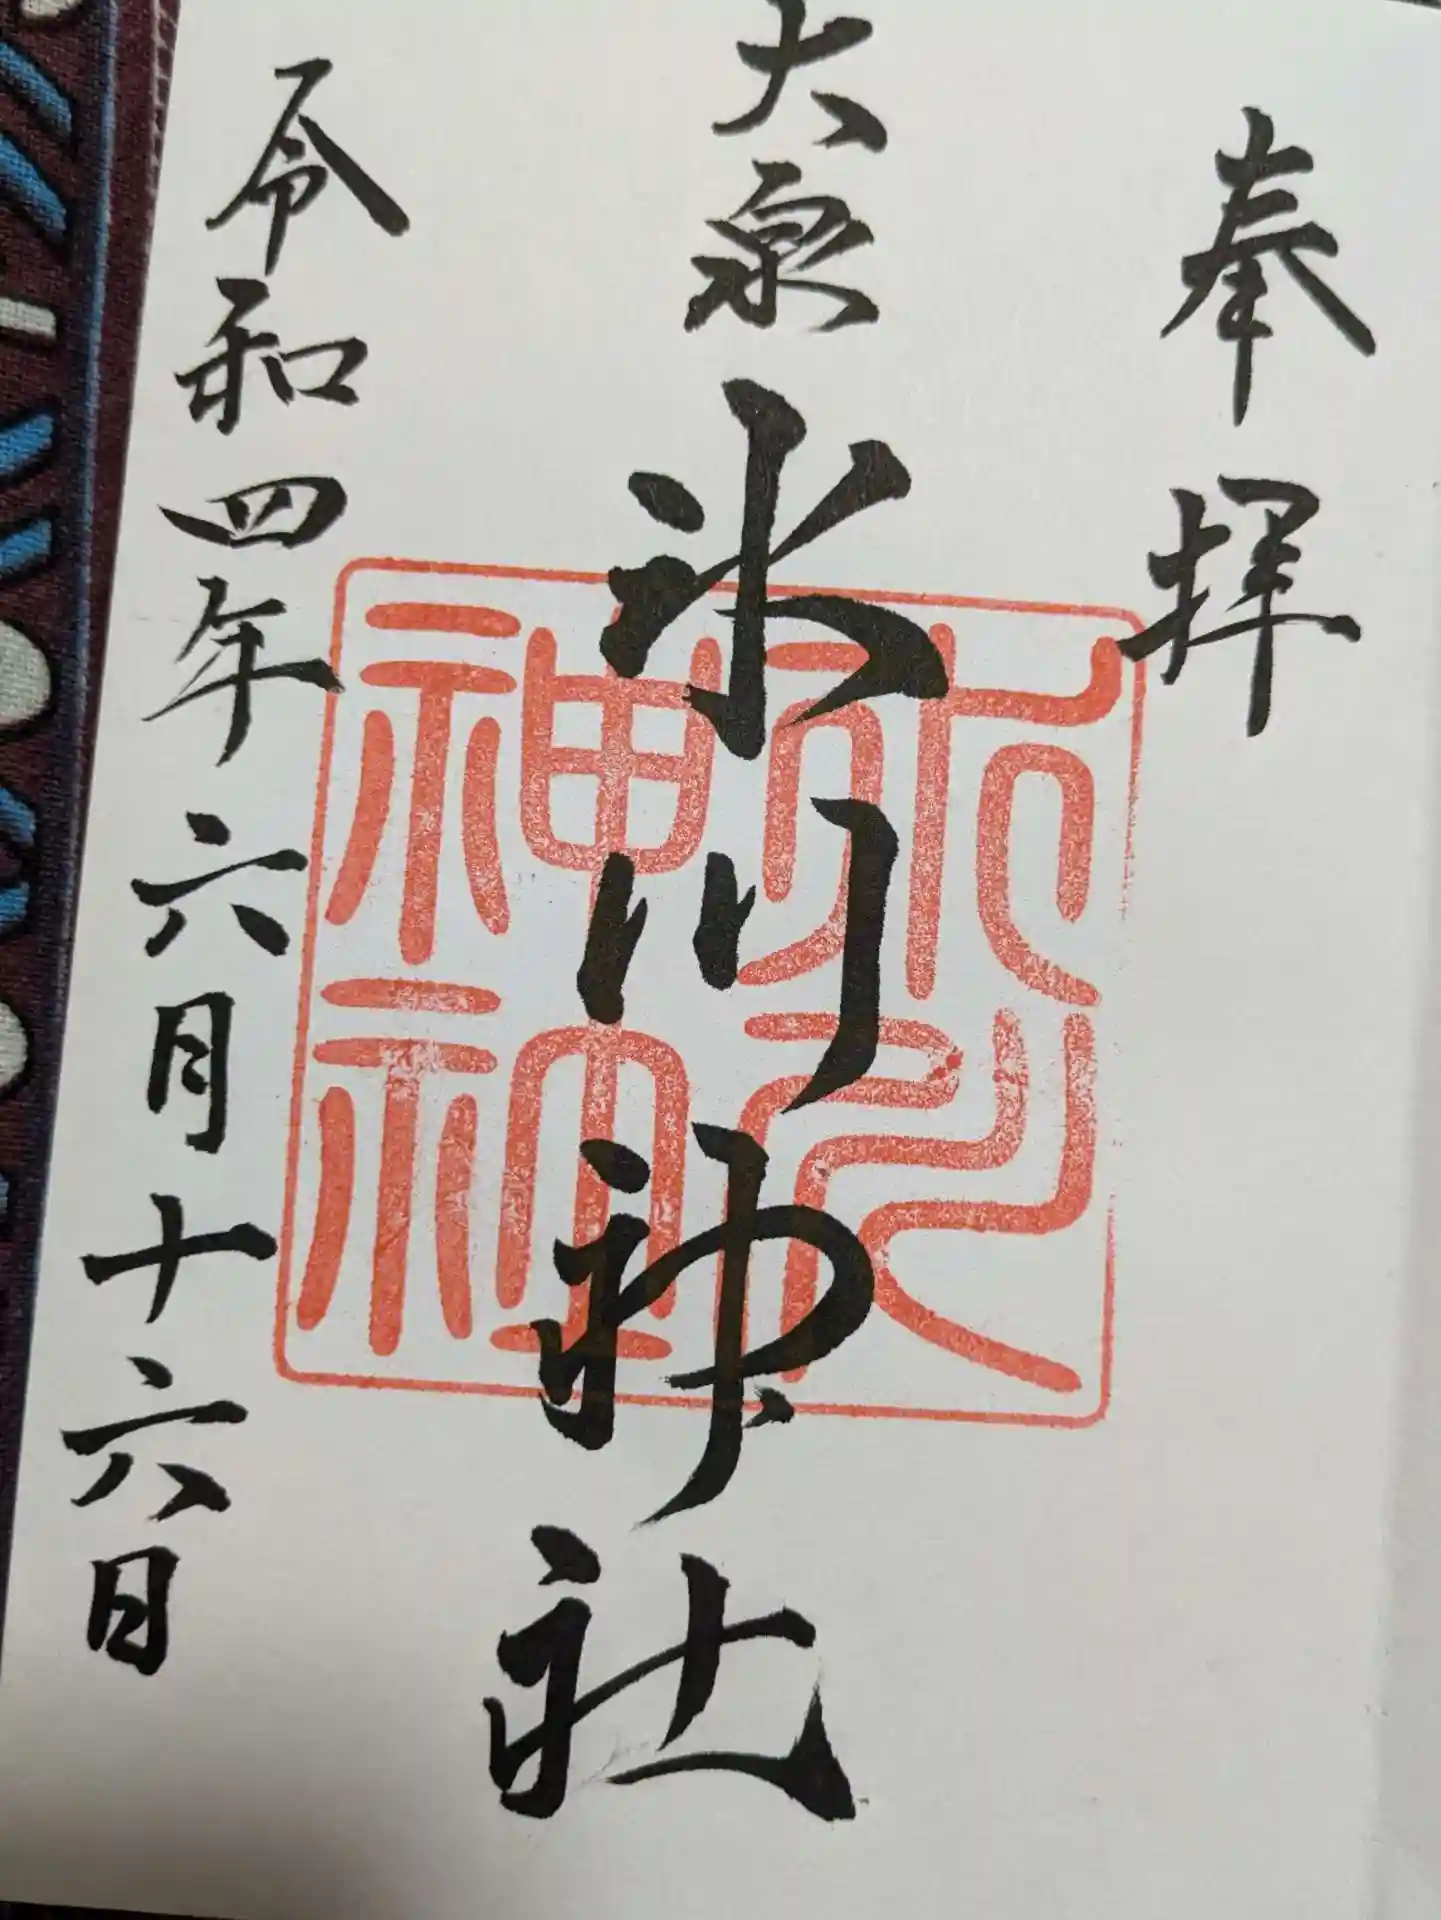 奉拝
大泉
氷川神社
令和四年六月十六日